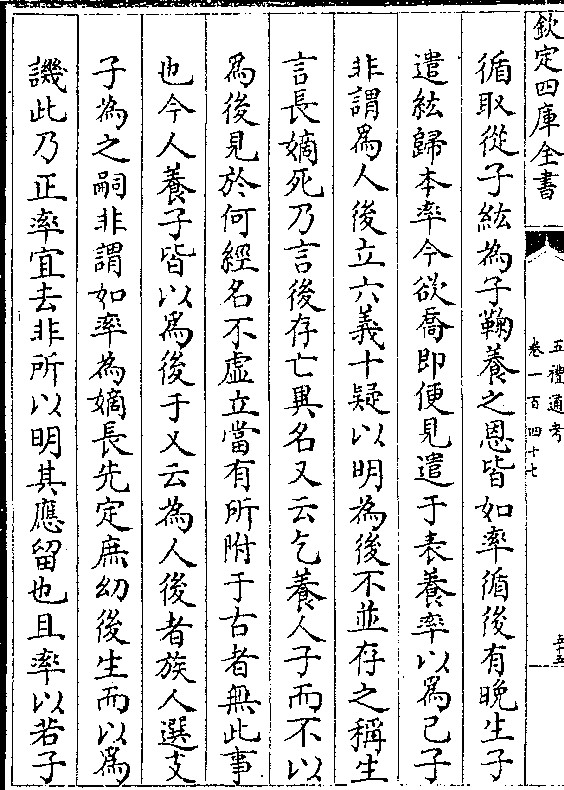 欽定四庫全書
五禮通考
卷一百四十七
五十五
循取從子紘為子鞠養之恩皆如率循後有晚生子
遣紘歸本率今欲喬即便見遣于表養率以為己子
非謂為人後立六義十疑以明為後不並存之稱生
言長嫡死乃言後存亡異名又云乞養人子而不以
為後見於何經名不虛立當有所附于古者無此事
也今人養子皆以為後于又云為人後者族人選支
子為之嗣非謂如率為嫡長先定庶幼後生而以為
譏此乃正率宜去非所以明其應留也且率以若子